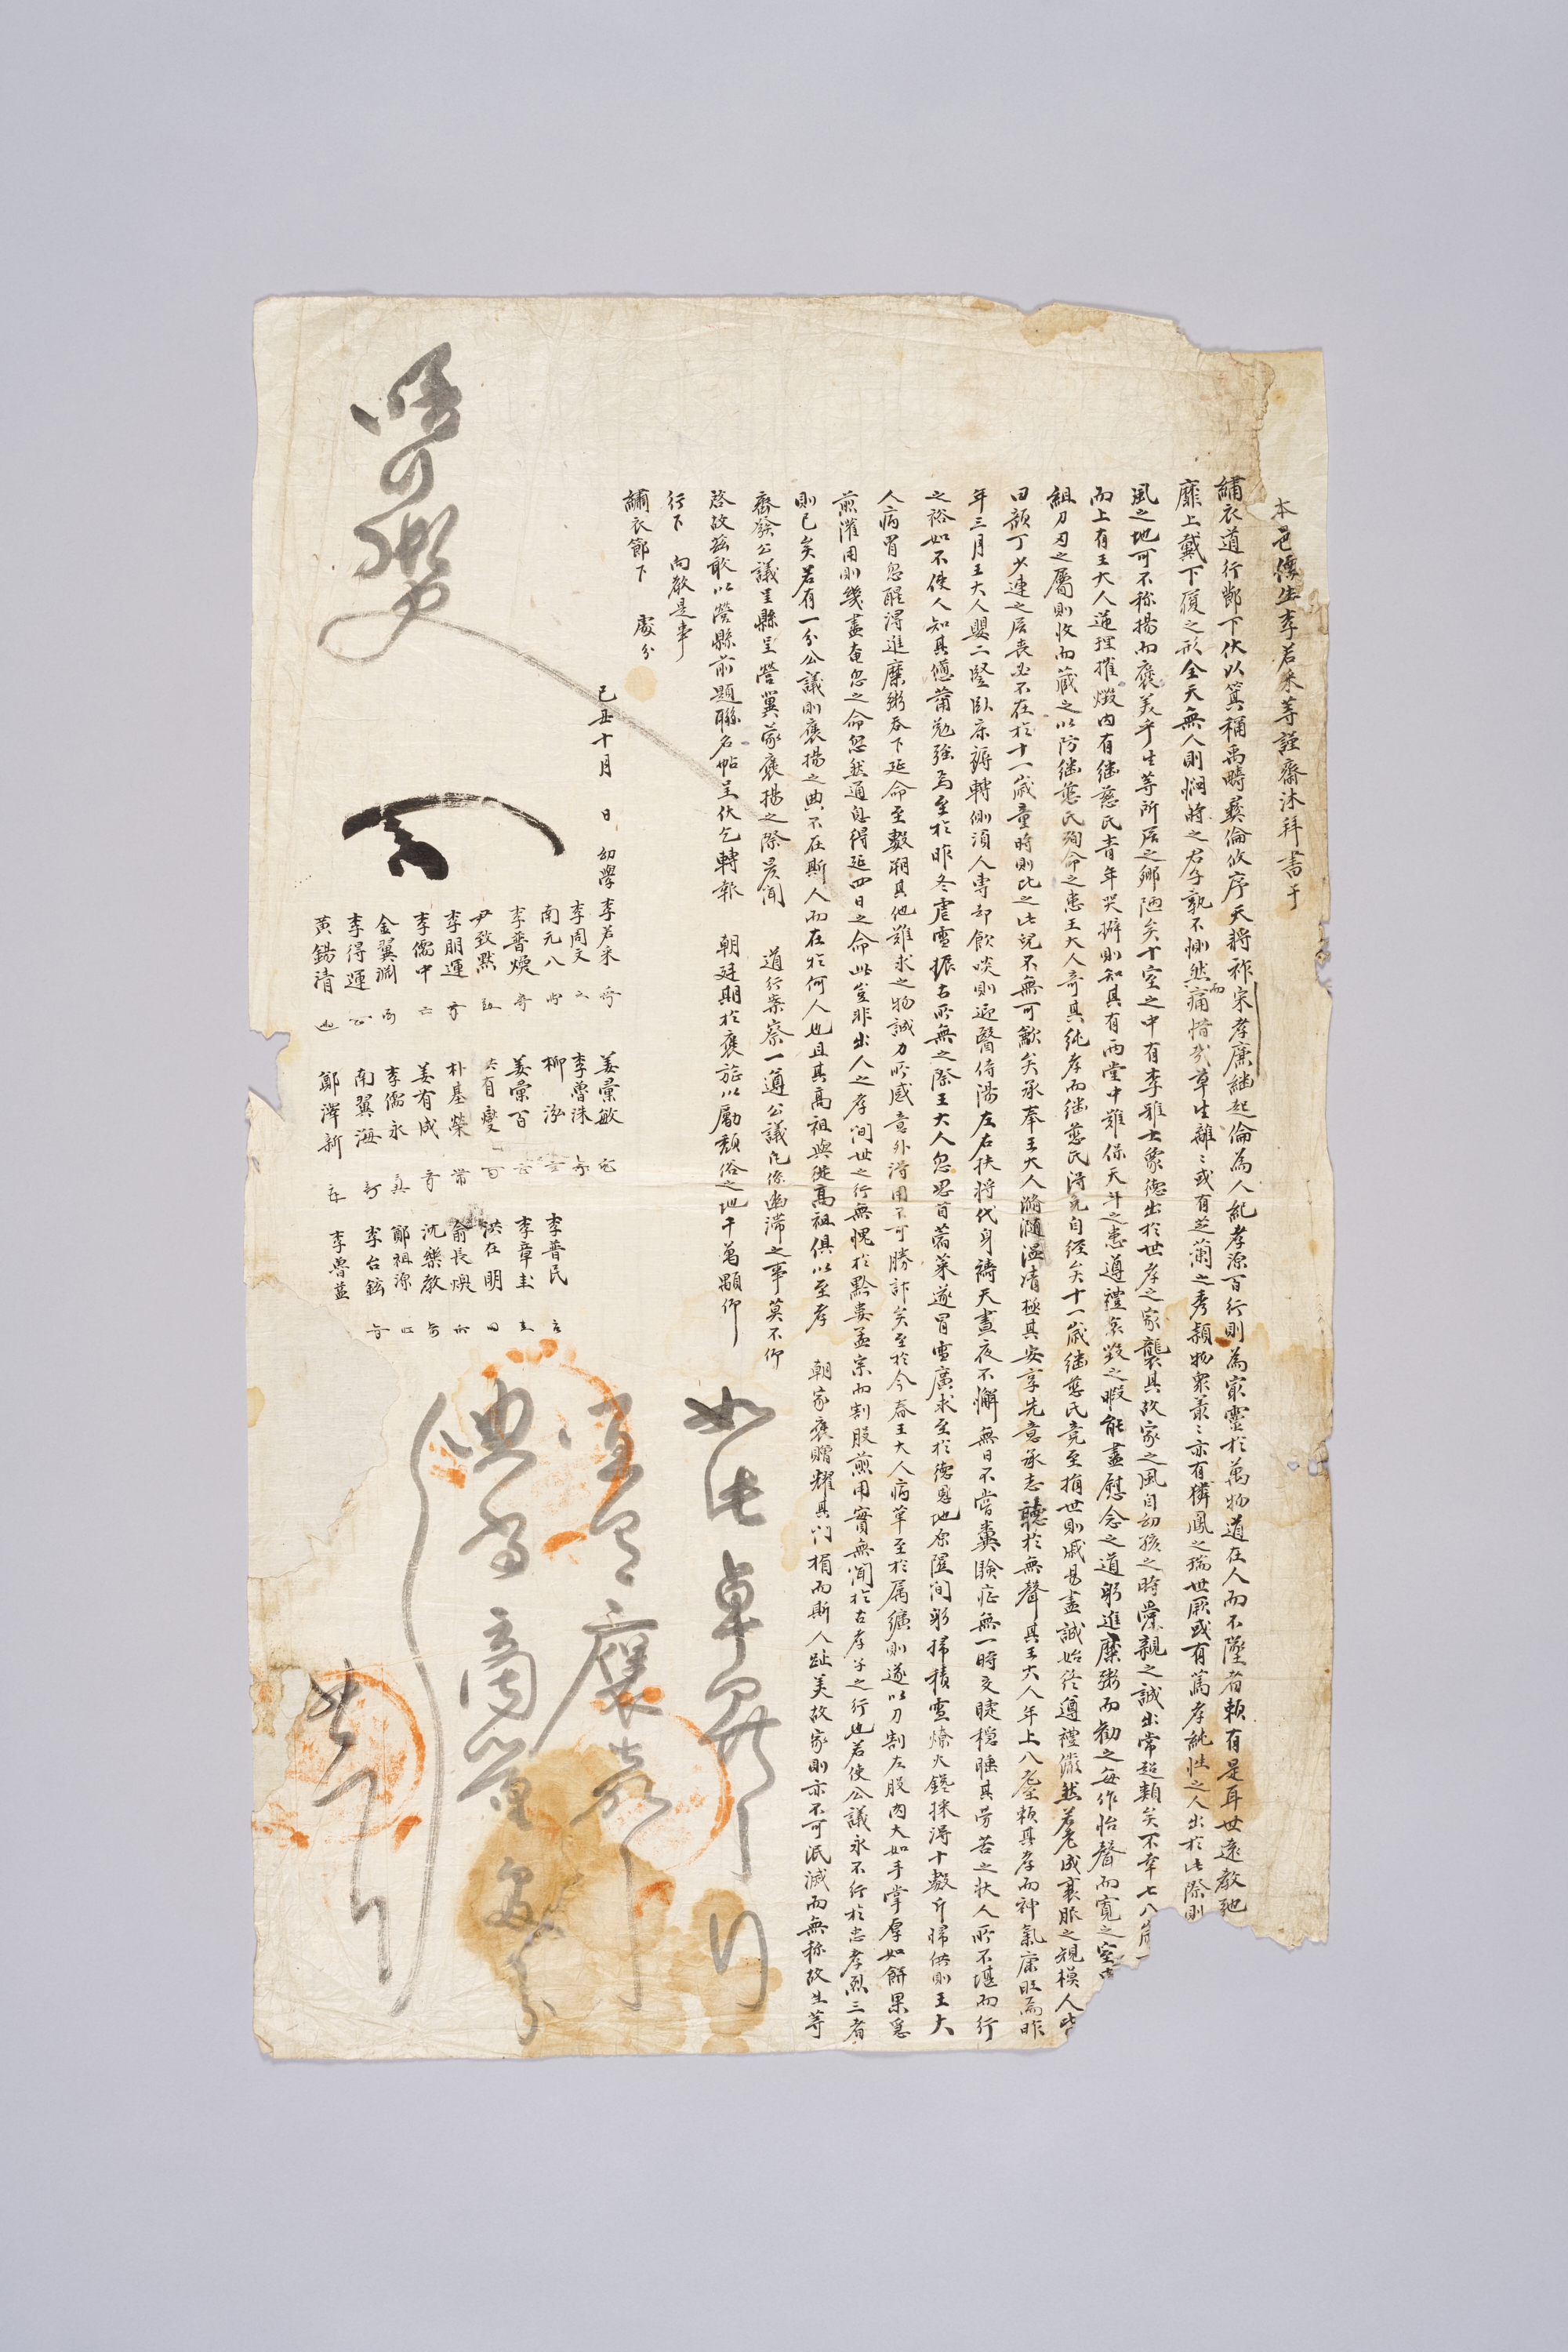 本邑儒生李若采等謹齋沐拜書于
繡衣道行鄼下伏以箕稱禹疇彛倫攸序天將祚宋孝廉継起倫為人紀孝源百行則為㝡靈於萬物道在人而不墜者賴有是耳世遠教弛
靡上戴下履之形全天無人則悶時之君子孰不惻然而痛惜哉草生離〻或有芝蘭之秀穎物衆叢〻亦有獜鳳之瑞世厥或有篤孝純性之人出於此際則
風之地可不称揚而褒美乎生等所居之鄉陋矣十室之中有李雅士象德出於世孝之家襲其故家之風自幼孩之時愛親之誠出常超類矣不幸七八歲
而上有王大人蓮理摧燬內有継慈氏青年哭擗則知其有兩堂中難保天斗之患遵禮哀毀之暇能盡慰念之道躬進糜粥而勸之每作怡聲而寬之室
組刀刃之屬則收而藏之以防継慈氏殉命之患王大人奇其純孝而継慈氏得免自経矣十一歲継慈氏竟至捐世則戚易盡誠始終遵禮澟然若老成衰服之規模人皆
曰顔丁少連之居丧必不在於十一歲童時則比之此兒不無可歉矣承奉王大人滫瀡溫凊極其安享先意承志聽於無聲其王大人年上八耋賴其孝而神氣康旺焉昨
年三月王大人嬰二竪臥床褥轉側須人專却飮啖則迎醫侍湯左右扶將代身禱天晝夜不懈無日不嘗糞驗症無一時交睫穏睡其劳苦之状人所不堪而行
之裕如不使人知其憊薾勉強焉至於昨冬虐雪振古所無之際王大人忽思苜蓿菜遂冒雪廣求至於德恩地原隰間躬掃積雪燎火鑱採得十數斤歸供則王大
人病胃忽醒淂進糜粥呑下延命至數朔其他難求之物誠力所感意外淂用不可勝計矣至於今春王大人病革至於屬纊則遂以刀割左股肉大如手掌厚如餠果急
煎灌用則幾盡奄忽之命忽然通息得延四日之命此豈非出人之孝間世之行無愧於黔婁孟宗而割股煎用實無聞於古孝子之行也若使公議永不行於忠孝烈三者
則已矣若有一分公議則褒揚之典不在斯人而在於何人也且其高祖與從高祖俱以至孝 朝家褒贈耀其门楣而斯人趾美故家則亦不可泯滅而無称故生等
齊發公議呈縣呈營冀蒙褒揚之際㝵聞 道行案察一遵公議凡係幽滯之事莫不仰
啓故玆敢以營縣前題聯名帖呈伏乞轉報 朝廷期於褒旌以勵頹俗之地千萬顒仰
行下 向教是事
繡衣節下 處分
己丑十月 日 幼學李若采 姜彙敏
李周文 李魯洙 李普民
南元八 柳泓 李章圭
李晋煥 姜彙百 洪在明
尹致黙 有燮 俞長煥
李朋運 朴基榮 沈樂教
李儒中 姜有成 鄭祖源
金翼渊 李儒永 李台鉉
李得運 南翼海 李魯益
黃錫清 鄭澤新
如此卓異